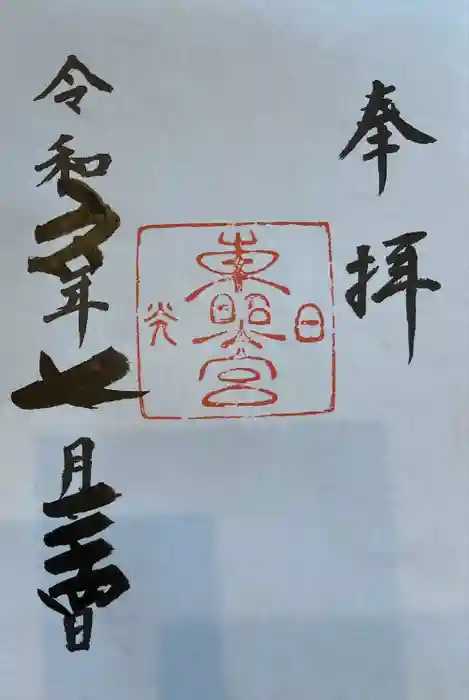 奉拝
日
東照宮
光
令和年七月日